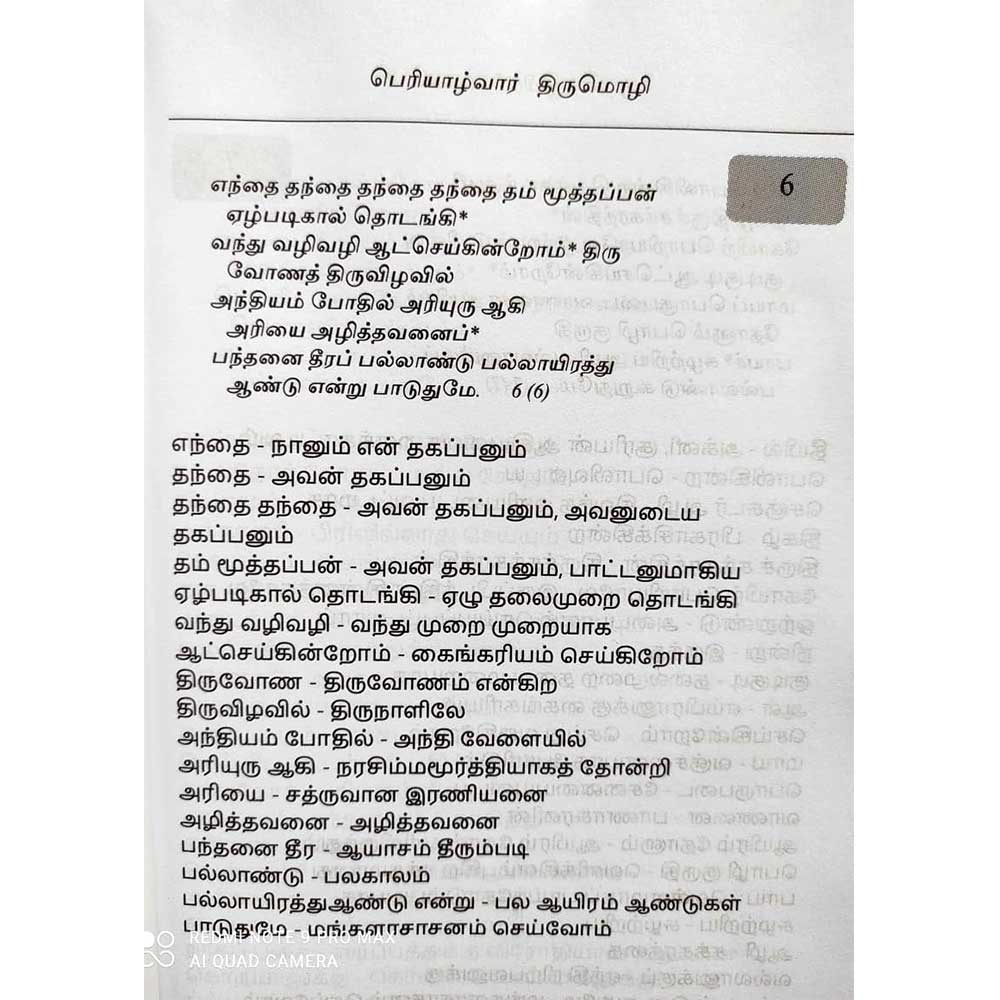 பெரியாழ்வார் திருமொழி
6
எந்தை தந்தை தந்தை தந்தை தம் மூத்தப்பன்
ஏழ்படிகால் தொடங்கி*
வந்து வழிவழி ஆட்செய்கின்றோம்* திரு
வோணத் திருவிழவில்
அந்தியம் போதில் அரியுரு ஆகி
அரியை அழித்தவனைப்*
பந்தனை தீரப் பல்லாண்டு பல்லாயிரத்து
ஆண்டு என்று பாடுதுமே. 6 (6)
எந்தை - நானும் என் தகப்பனும்
தந்தை - அவன் தகப்பனும்
தந்தை தந்தை - அவன் தகப்பனும், அவனுடைய
தகப்பனும்
தம் மூத்தப்பன் - அவன் தகப்பனும், பாட்டனுமாகிய
ஏழ்படிகால் தொடங்கி - ஏழு தலைமுறை தொடங்கி
வந்து வழிவழி - வந்து முறை முறையாக
ஆட்செய்கின்றோம் - கைங்கரியம் செய்கிறோம்
திருவோண - திருவோணம் என்கிற
திருவிழவில் - திருநாளிலே
அந்தியம் போதில் - அந்தி வேளையில்
அரியுரு ஆகி - நரசிம்மமூர்த்தியாகத் தோன்றி
அரியை - சத்ருவான இரணியனை
அழித்தவனை - அழித்தவனை
பந்தனை தீர - ஆயாசம் தீரும்படி
பல்லாண்டு - பலகாலம்
பல்லாயிரத்துஆண்டு என்று - பல ஆயிரம் ஆண்டுகள்
பாடுதுமே - மங்களாசாசனம் செய்வோம்
REDMI NOTE 9 PRO MAX
AI QUAD CAMERA